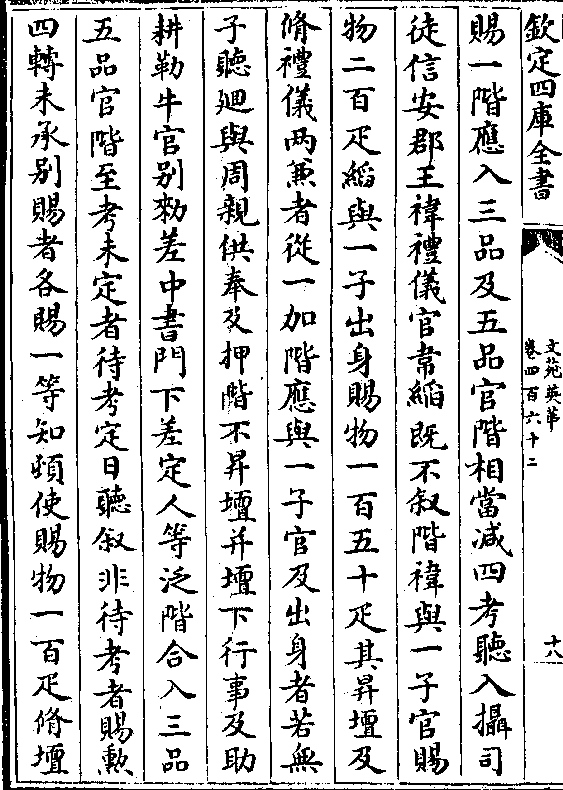 欽定四庫全書
文苑英華
卷四百六十二
十八
賜一階應入三品及五品官階相當減四考聽入攝司
徒信安郡王禕禮儀官韋縚既不叙階禕與一子官賜
物二百疋縚與一子出身賜物一百五十疋其昇壇及
脩禮儀两兼者從一加階應與一子官及出身者若無
子聽廻與周親供奉及押階不昇壇并壇下行事及助
耕勒牛官别勑差中書門下差定人等泛階合入三品
五品官階至考未定者待考定日聽叙非待考者賜勲
四轉未承别賜者各賜一等知頓使賜物一百疋脩壇